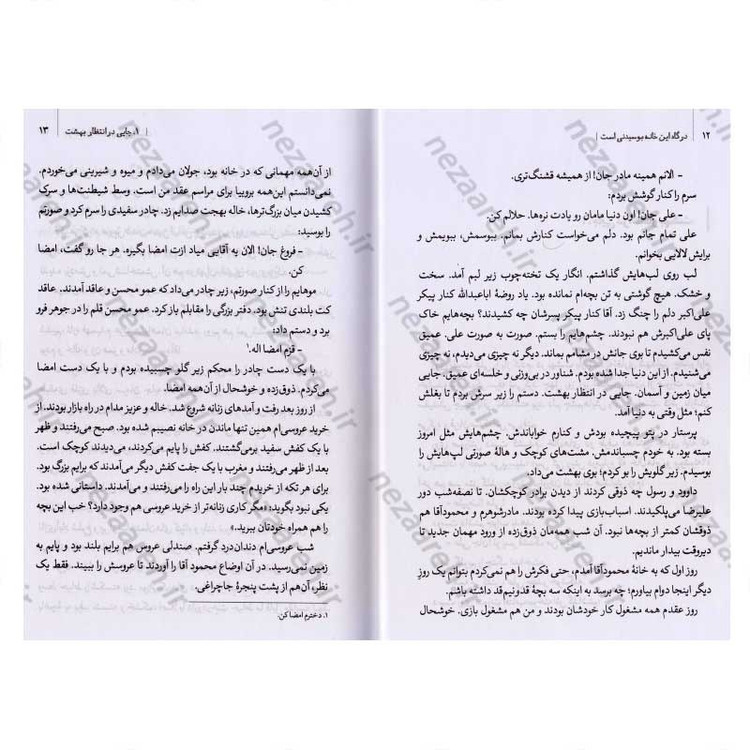 ۱۲ | درگاه این خانه بوسیدنی است |
– الانم همینه مادر جان! از همیشه قشنگ‌تری.
سرم را کنار گوشش بردم:
– علی جان! اون دنیا مامان رو یادت نره‌ها. حلالم کن.
علی تمام جانم بود. دلم می‌خواست کنارش بمانم. ببوسمش، ببویمش و
برایش لالایی بخوانم.
لب روی لب‌هایش گذاشتم. انگار یک تخته‌چوب زیر لبم آمد. سخت
و خشک. هیچ گوشتی به تن بچه‌ام نمانده بود. یاد روضهٔ اباعبدالله کنار پیکر
علی‌اکبر دلم را چنگ زد. آقا کنار پیکر پسرشان چه کشیدند؟ بچه‌هایم خاک
پای علی‌اکبرش هم نبودند. چشم‌هایم را بستم. صورت به صورت علی. عمیق
نفس می‌کشیدم تا بوی جانش در مشامم بماند. دیگر نه چیزی می‌دیدم، نه چیزی
می‌شنیدم. از این دنیا جدا شده بودم. شناور در بی‌وزنی و خلسه‌ای عمیق. جایی
میان زمین و آسمان. جایی در انتظار بهشت. دستم را زیر سرش بردم تا بغلش
کنم؛ مثل وقتی به دنیا آمد.
پرستار در پتو پیچیده بودش و کنارم خواباندش. چشم‌هایش مثل امروز
بسته بود. به خودم چسباندمش. مشت‌های کوچک و هالهٔ صورتی لب‌هایش را
بوسیدم. زیر گلویش را بو کردم؛ بوی بهشت می‌داد.
داوود و رسول چه ذوقی کردند از دیدن برادر کوچکشان. تا نصفه‌شب دور
علیرضا می‌پلکیدند. اسباب‌بازی پیدا کرده بودند. مادرشوهرم و محمودآقا هم
ذوقشان کمتر از بچه‌ها نبود. آن شب همه‌مان ذوق‌زده از ورود مهمان جدید تا
دیروقت بیدار ماندیم.
روز اول که به خانهٔ محمودآقا آمدم، حتی فکرش را هم نمی‌کردم بتوانم یک روزِ
دیگر اینجا دوام بیاورم؛ چه برسد به اینکه سه بچهٔ قدونیم‌قد داشته باشم.
روز عقدم همه مشغول کار خودشان بودند و من هم مشغول بازی. خوشحال
| ۱. جایی در انتظار بهشت | ۱۳
از آن‌همه مهمانی که در خانه بود، جولان می‌دادم و میوه و شیرینی می‌خوردم.
نمی‌دانستم این‌همه بروبیا برای مراسم عقد من است. وسط شیطنت‌ها و سرک
کشیدن میان بزرگ‌ترها، خاله بهجت صدایم زد. چادر سفیدی را سرم کرد و صورتم
را بوسید:
– فروغ جان! الان یه آقایی میاد ازت امضا بگیره. هر جا رو گفت، امضا
کن.
موهایم را از کنار صورتم، زیر چادر می‌داد که عمو محسن و عاقد آمدند. عاقد
کت بلندی تنش بود. دفتر بزرگی را مقابلم باز کرد. عمو محسن قلم را در جوهر فرو
برد و دستم داد:
– قزم امضا اله.۱
با یک دست چادر را محکم زیر گلو چسبیده بودم و با یک دست امضا
می‌کردم. ذوق‌زده و خوشحال از آن همه امضا.
از روز بعد رفت و آمدهای زنانه شروع شد. خاله و عزیز مدام در راه بازار بودند. از
خرید عروسی‌ام همین تنها ماندن در خانه نصیبم شده بود. صبح می‌رفتند و ظهر
با یک کفش سفید برمی‌گشتند. کفش را پایم می‌کردند، می‌دیدند کوچک است.
بعد از ظهر می‌رفتند و مغرب با یک جفت کفش دیگر می‌آمدند که برایم بزرگ بود.
برای هر تکه از خریدم چند بار این راه را می‌رفتند و می‌آمدند. داستانی شده بود.
یکی نبود بگوید: «مگر کاری زنانه‌تر از خرید عروسی هم وجود دارد؟ خب این بچه
را هم همراه خودتان ببرید.»
شب عروسی‌ام دندان‌درد گرفتم. صندلی عروس هم برایم بلند بود و پایم به
زمین نمی‌رسید. در آن اوضاع محمود آقا را آوردند تا عروسش را ببیند. فقط یک
نظر، آن‌هم از پشت پنجرهٔ جاچراغی.
۱. دخترم امضا کن.
nezaareh.ir